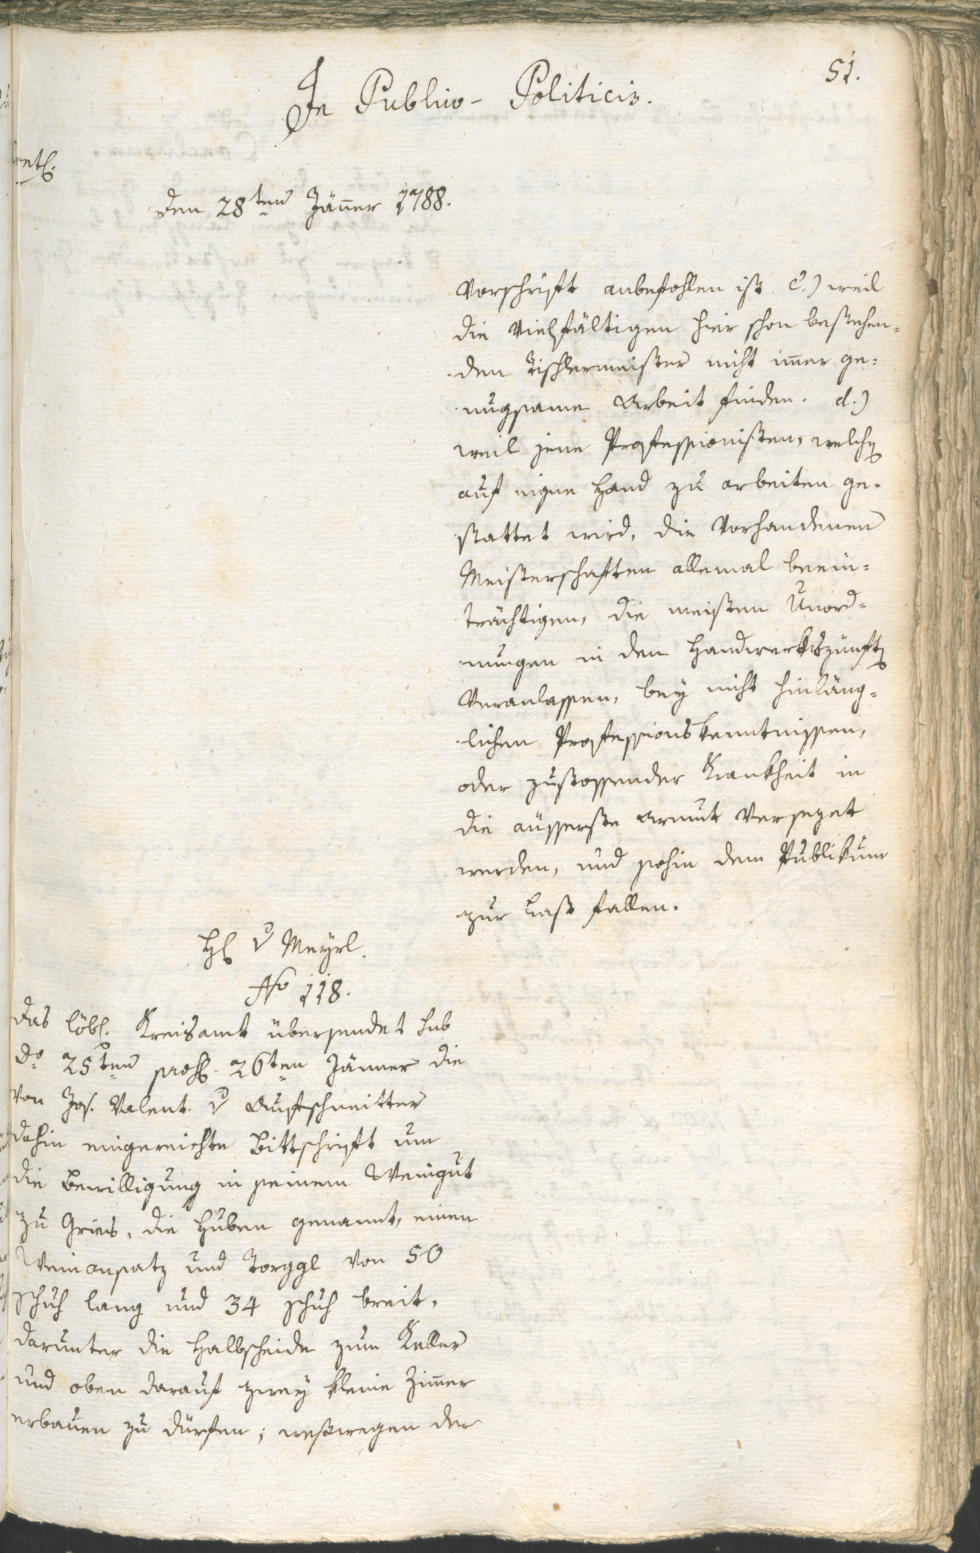 51.
In Publico-Politicis.
den 28ten Jäner 1788.
Vorschrift anbefohlen ist c.) weil
die Vielfältigen hier schon bestehen=
den Tischlermeister nicht imer ge=
nugsame Arbeit finden. d.)
weil jene Professionisten, welchen
auf eigne Hand zu arbeiten ge=
stattet wird, die Vorhandenen
Meisterschaften allemal beein=
trächtigen, die meisten Unord=
nungen in den Handwerkszünften
Veranlassen, bey nicht hinläng=
lichen Professionskenntnissen,
oder zustossender Krankheit in
die äusserste Armut Versezet
werden, und sohin dem Publikum
zur Last fallen.
H. v Meyrl.
No 118.
Das löbl. Kreisamt übersendet sub
do 25ten pross. 26ten Jänner die
Von Jos. Valent. v Aufschneitter
dahin eingereichte Bittschrift um
die Bewilligung in seinem Weingut
zu Gries, die Huben genannt, einen
Weinansatz und Torggl von 50
Schuh lang und 34 Schuh breit,
darunter die Halbscheide zum Keller
und oben darauf zwey kleine Zimer
erbauen zu dürfen; weswegen der